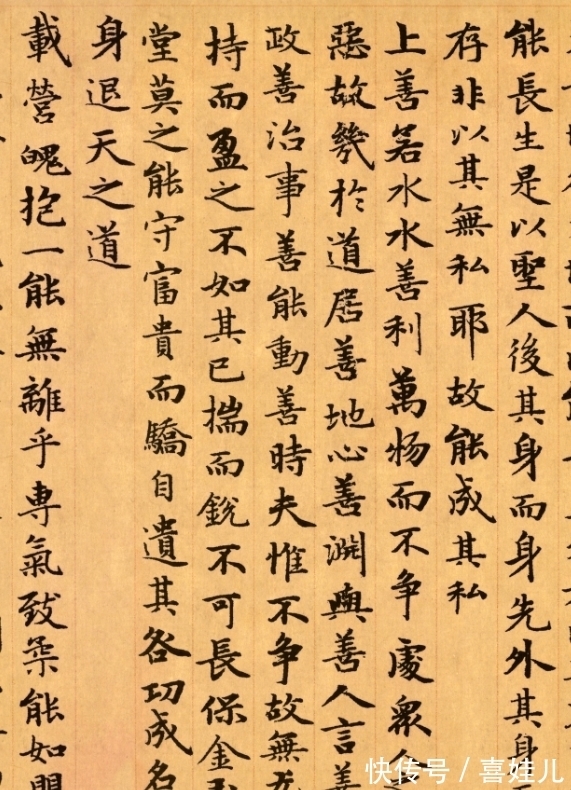 能長生是以聖人後其身而身先外其身
存非以其無私耶故能成其私
上善若水水善利萬物而不争處衆
惡故幾於道居善地心善淵與善人言善
政善治事善能動善時夫惟不争故無尤
持而盈之不如其已揣而銳不可長保金玉
堂莫之能守富貴而驕自遺其咎功成名
身退天之道
載營魄抱一能無離乎専氣致柔能如
快传号 / 喜娃儿